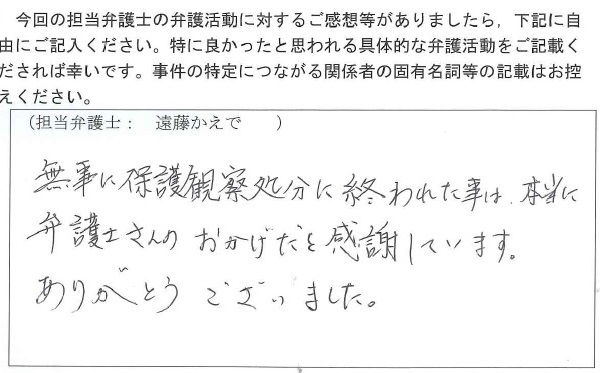 今回の担当弁護士の弁護活動に対するご感想等がありましたら，下記に自
由にご記入ください。特に良かったと思われる具体的な弁護活動をご記載く
だされば幸いです。事件の特定につながる関係者の固有名詞等の記載はお控
えください。
（担当弁護士：　遠藤かえで　　）
無事に保護観察処分に終われた事は、本当に
弁護士さんの おかげだと感謝しています。
ありがとう ございました。